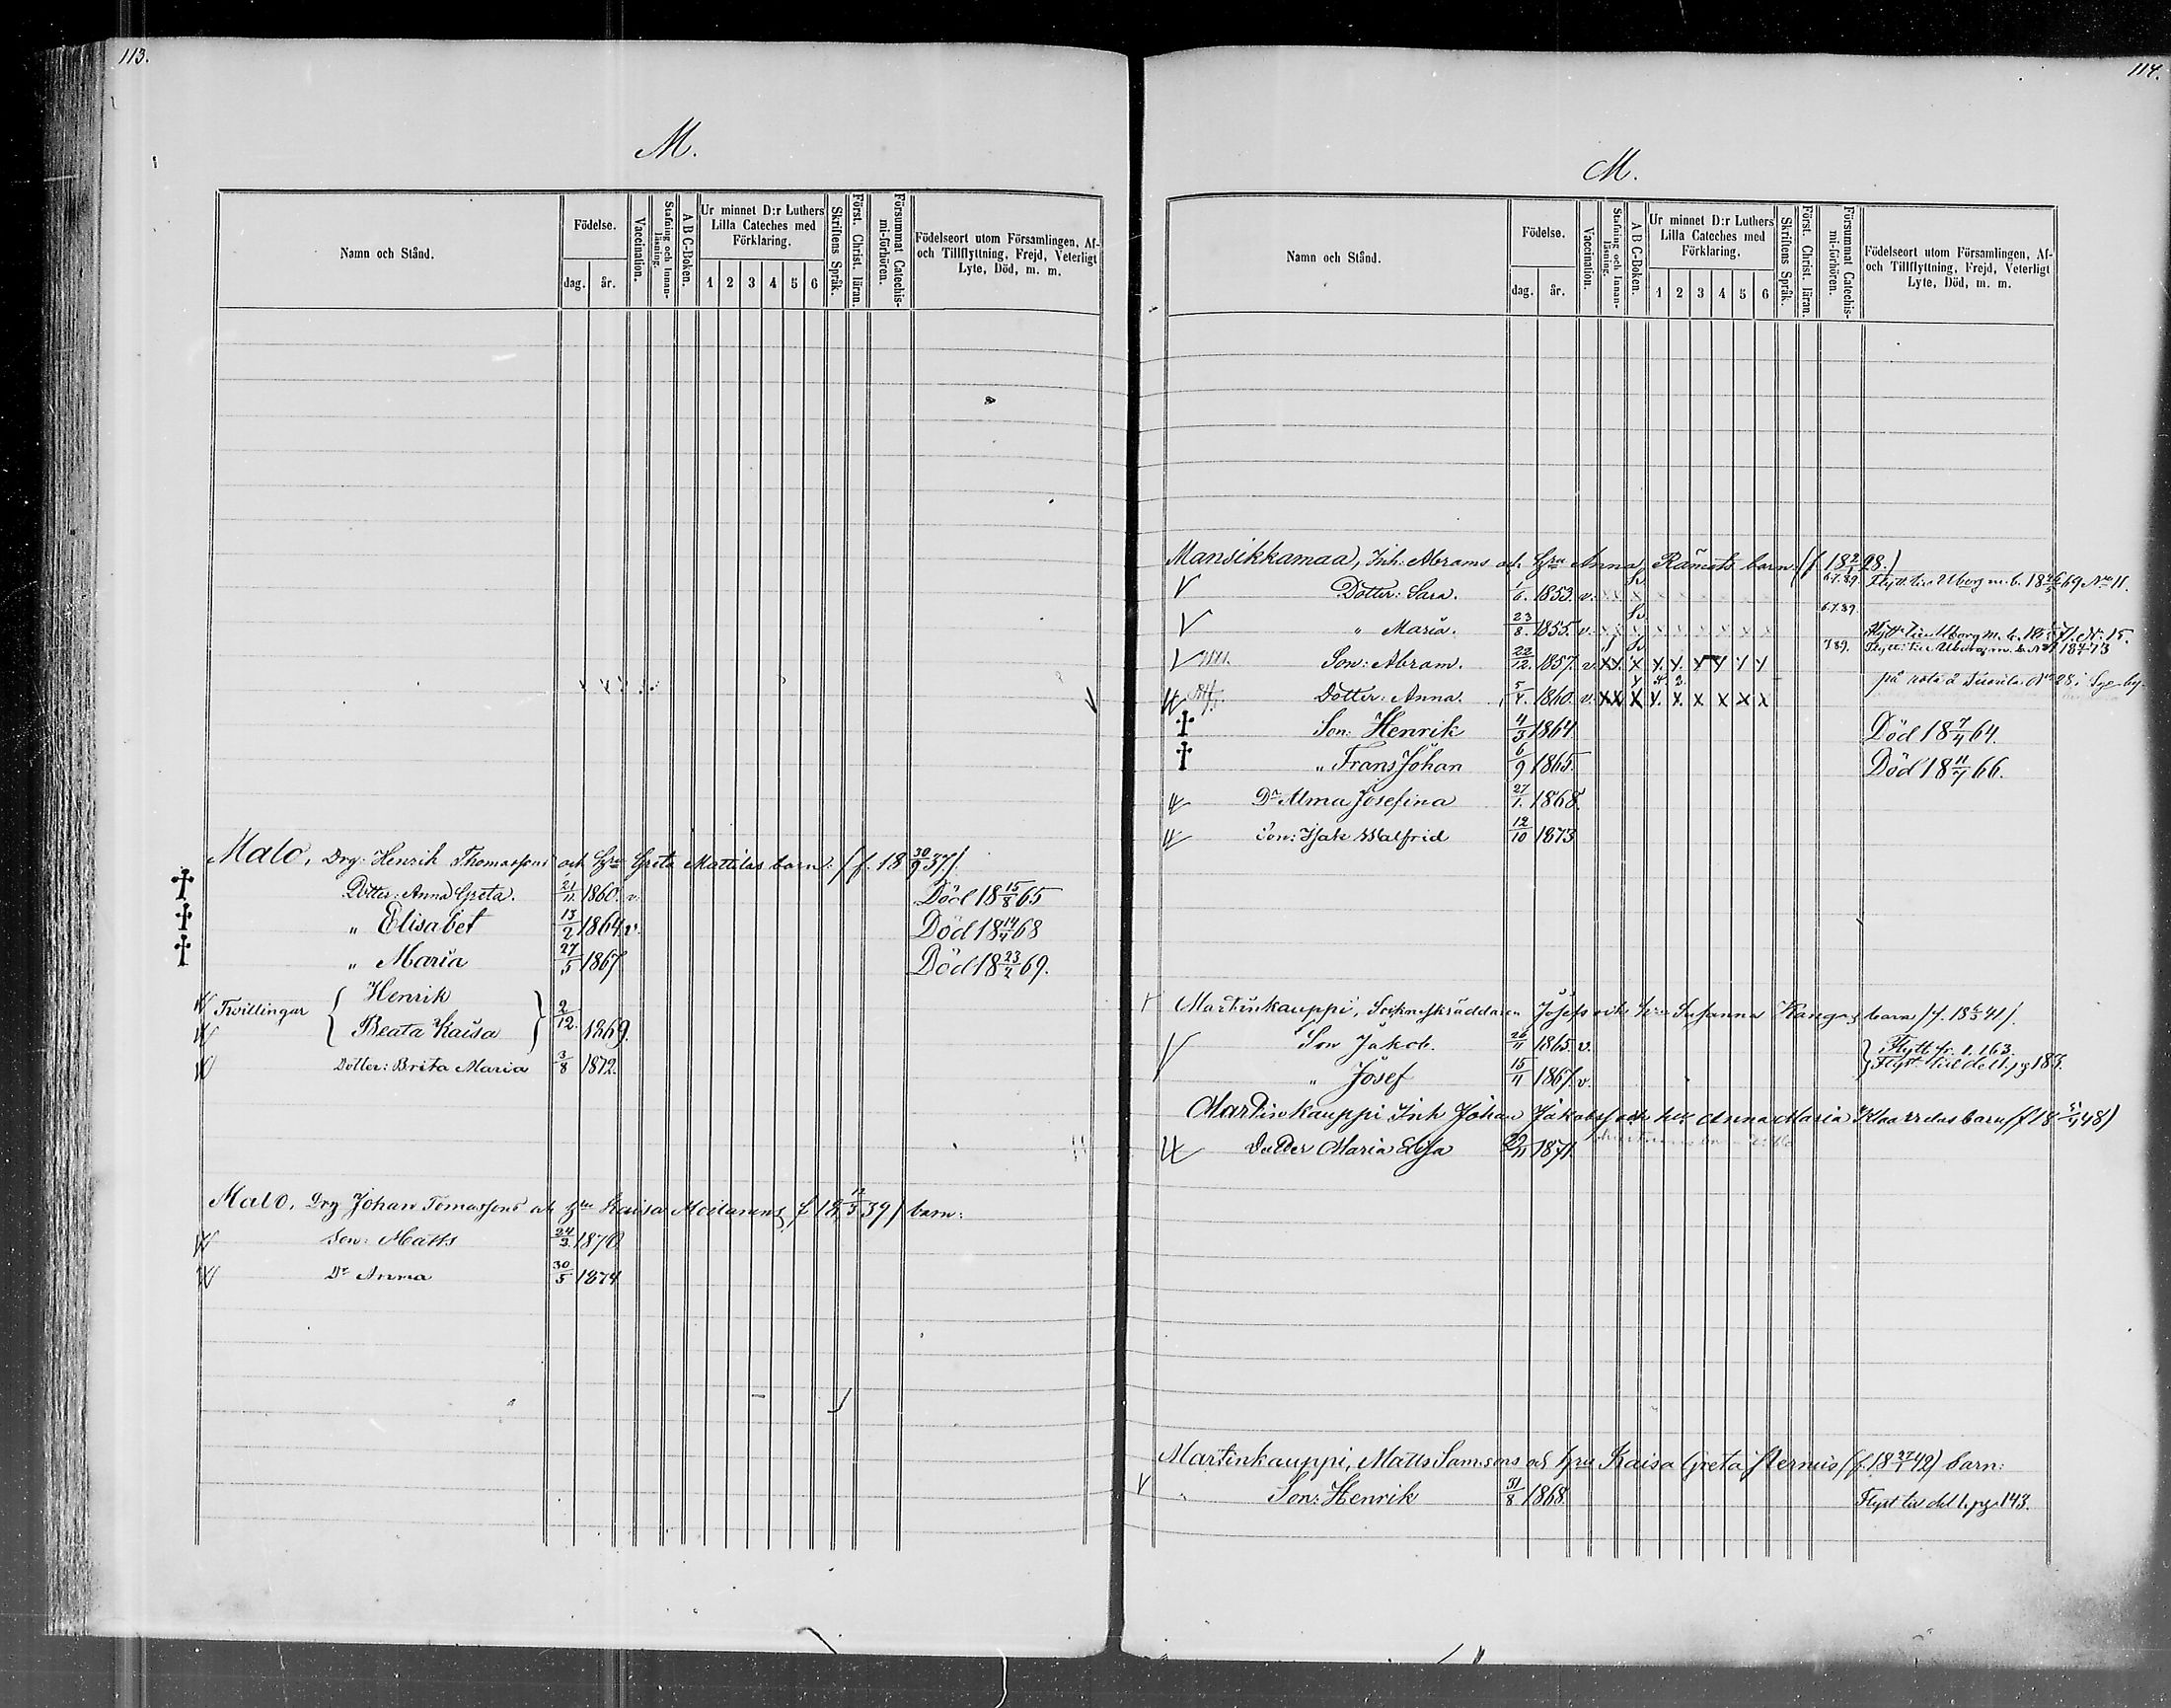 113.
M.
Namn och Stånd.
Födelse.
dag.
år.
Vaccination.
Stafning och Innan-läsning.
A B C-Boken.
Ur minnet D:r Luthers
Lilla Cateches med
Förklaring.
1 2 3 4 5 6
Skriftens Språk.
Först. Christ. läran.
Försummat Catechis-mi-förhören.
Födelseort utom Församlingen, Af-
och Tillflyttning, Frejd, Veterligt
Lyte, Död, m. m.
Malo, Drg. Henrik Thomassons och Hru Greta Mattilas barn. (f. 18 30/9 37)
Dotter: Anna Greta. 21/11 1860. v. Död 18 15/8 65
" Elisabet 13/2 1864. v. Död 18 14/4 68
" Maria 27/5 1867 Död 18 23/2 69.
Tvillingar { Henrik
Beata Kaisa } 2/12. 1869.
Dotter: Brita Maria 3/8 1872.
Malo, Drg Johan Tomassons och Hru Kaisa f. 18 12/3 39) barn:
Son: Matts 24/3 1870
Dr Anna 30/5 1874
114.
M.
Namn och Stånd.
Födelse.
dag.
år.
Vaccination.
Stafning och Innan-läsning.
A B C-Boken.
Ur minnet D:r Luthers
Lilla Cateches med
Förklaring.
1 2 3 4 5 6
Skriftens Språk.
Först. Christ. läran.
Försummat Catechis-mi-förhören.
Födelseort utom Församlingen, Af-
och Tillflyttning, Frejd, Veterligt
Lyte, Död, m. m.
Mansikkamaa, Inh. Abrams och Hru Anna barn.
Dotter: Sara. 1/6. 1853. v. 67.89. Flytt. till Uborg m. b. 69 No 11.
" Maria. 23/8. 1855. v. 67.89. Flytt. till Uborg m. b. 71. No 15.
Son: Abram. 22/12. 1857. v. x x x x x x x x x 789.
Dotter: Anna. 5/4. 1860. v. x x x x x x x x x
Son: Henrik 4/3 1864 Död 18 7/4 64.
" Frans Johan 6/9 1865. Död 18 11/7 66.
Dr Alma Josefina 27/1. 1868.
Son: Isak Walfrid 12/10 1873
Martinkauppi, Sockneskräddaren Josefs och Hru Susanna Kangas barn
Son Jakob. 26/11 1865. v. } Flytt fr. 1. 163.
" Josef 15/11 1867. v. Flyt till del 1. pg 183.
Martinkauppi Inh Johan Jakobs och Anna Maria barn
Dotter Maria Lisa 29/11 1871
Martinkauppi, Matts Samsons och Hru Kaisa Greta (f. 18 27/1 42) barn:
Son: Henrik 31/8 1868 Flyt till del 1. pg. 143.